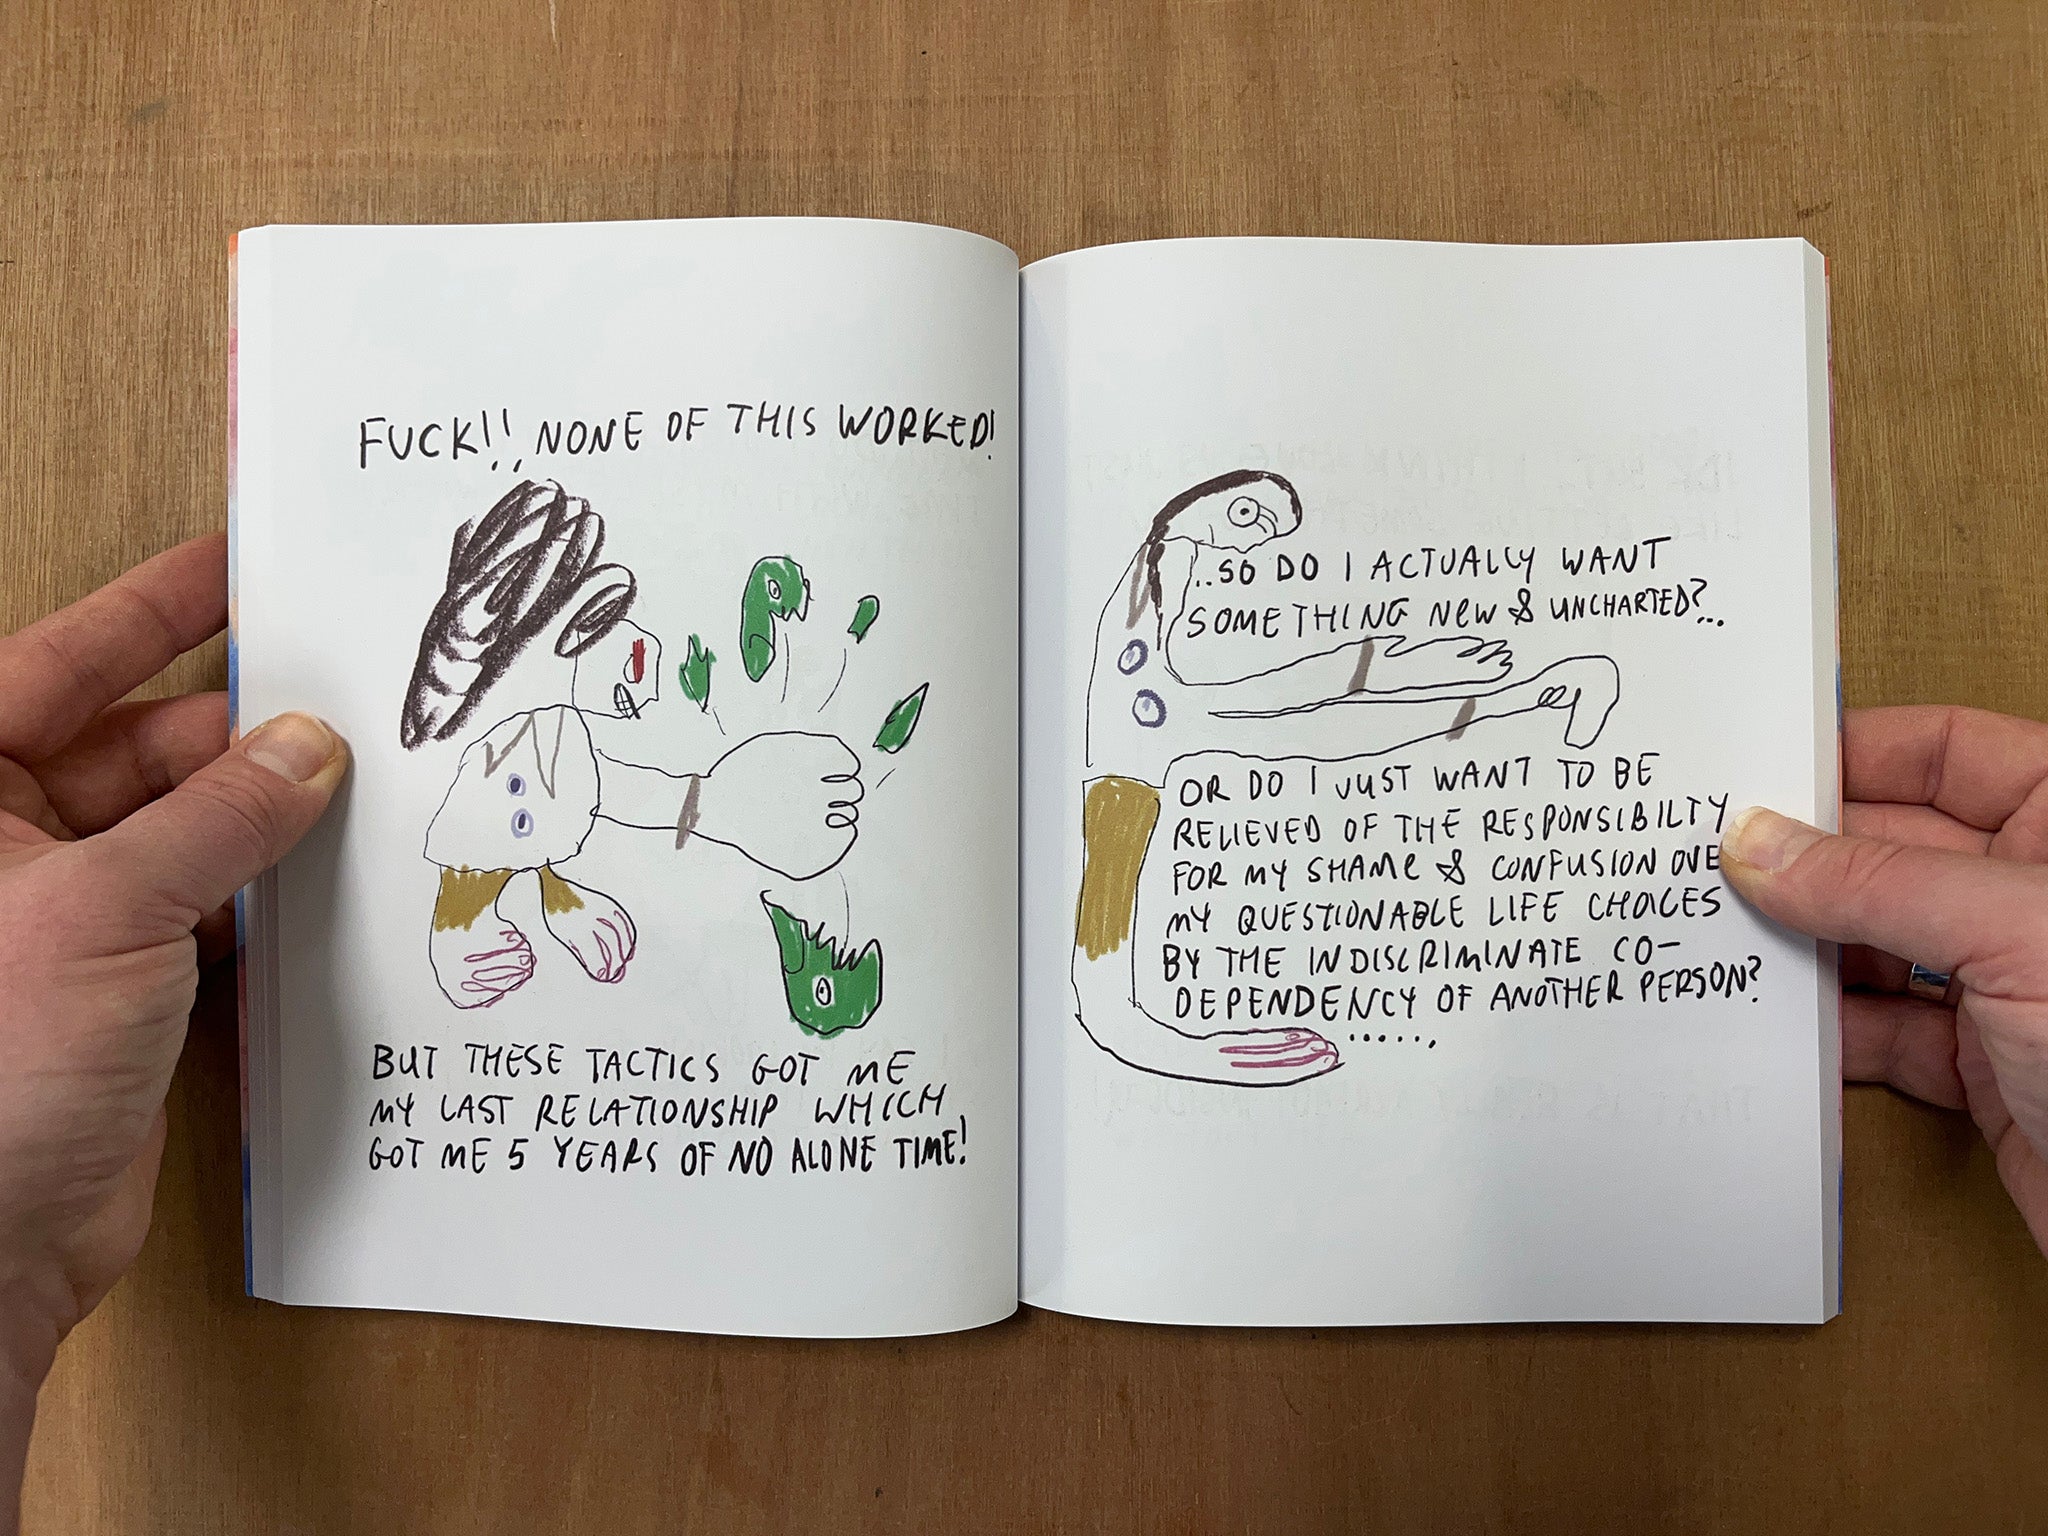 FUCK!!, NONE OF THIS WORKED!
BUT THESE TACTICS GOT ME
MY LAST RELATIONSHIP WHICH
GOT ME 5 YEARS OF NO ALONE TIME!
..SO DO I ACTUALLY WANT
SOMETHING NEW & UNCHARTED?...
OR DO I JUST WANT TO BE
RELIEVED OF THE RESPONSIBILTY
FOR MY SHAME & CONFUSION OVE
MY QUESTIONABLE LIFE CHOICES
BY THE INDISCRIMINATE CO-
DEPENDENCY OF ANOTHER PERSON?
......